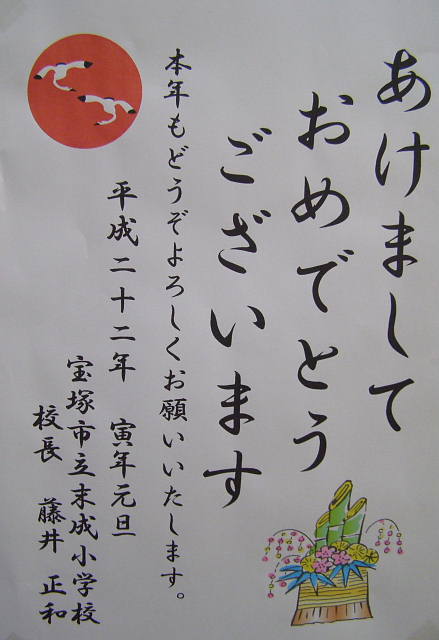 あけまして
おめでとう
ございます
本年もどうぞよろしくお願いいたします。
平成二十二年 寅年元旦
宝塚市立末成小学校
校長 藤井 正和